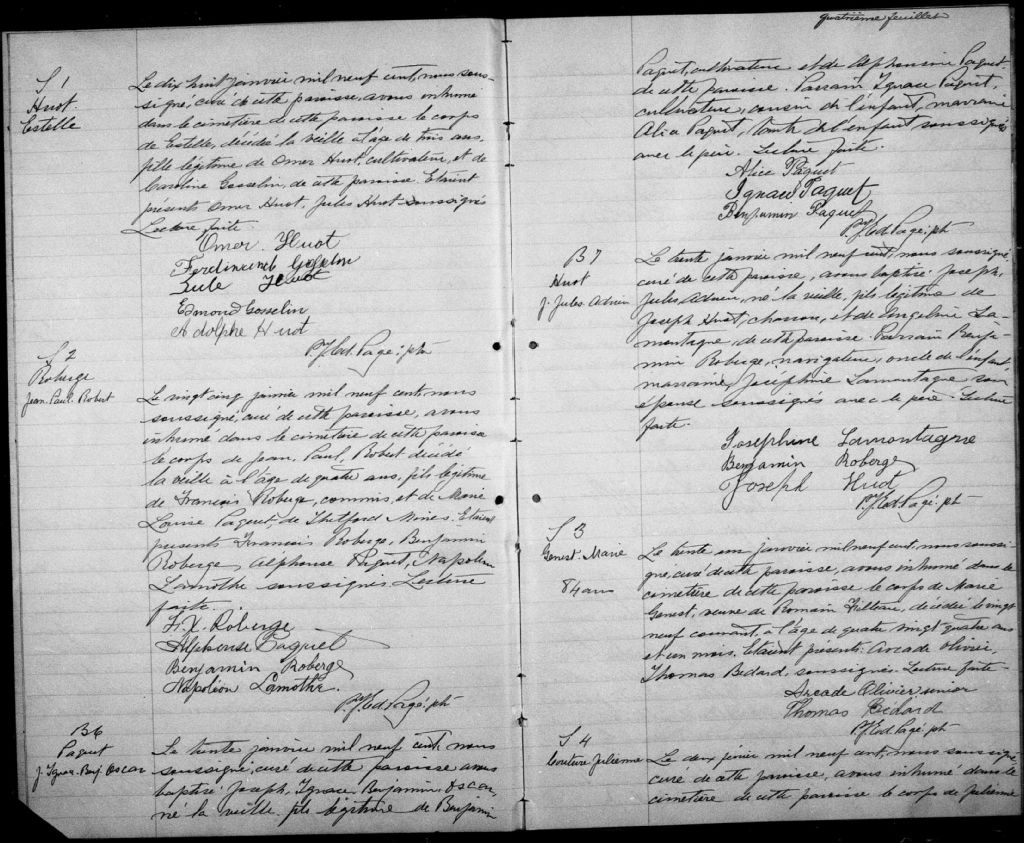 S 1
Huot
Estelle
Le dix huit janvier mil neuf cent, nous sous-
signé, curé de cette paroisse, avons inhumé
dans le cimetière de cette paroisse le corps
de Estelle, décédée la veille à l'âge de trois ans,
fille légitime de Omer Huot, cultivateur, et de
Caroline Gosselin, de cette paroisse. Etaient
présents Omer Huot, Jules Huot soussignés
Lecture faite.
Omer Huot
Ferdinand Gosselin
Jule Huot
Edmond Gosselin
Adolphe Huot
Pagé, ptr
S 2
Roberge
Jean. Paul. Robert
Le vingt cinq janvier mil neuf cent, nous
soussigné, curé de cette paroisse, avons
inhumé dans le cimetière de cette paroisse
le corps de Jean, Paul, Robert décédé
la veille à l'âge de quatre ans, fils légitime
de François Roberge, commis, et de Marie
Louise Paquet, de Thetford Mines. Etaient
présents François Roberge, Benjamin
Roberge, Alphonse Paquet, Napoléon
Lamothe soussignés. Lecture
faite.
F. X. Roberge
Alphonse Paquet
Benjamin Roberge
Napoléon Lamothe.
Pagé, ptr
B 6
Paquet
J. Ignace. Benj. Oscar
Le trente janvier mil neuf cent, nous
soussigné, curé de cette paroisse avons
baptisé Joseph, Ignace, Benjamin Oscar,
né la veille, fils légitime de Benjamin
quatrième feuillet
Paquet, cultivateur et de Alphonsine Paquet
de cette paroisse. Parrain Ignace Paquet,
cultivateur, cousin de l'enfant, marraine
Alice Paquet, tante de l'enfant soussignés
avec le père. Lecture faite.
Alice Paquet
Ignace Paquet
Benjamin Paquet
Pagé, ptr
B 7
Huot
J. Jules. Adrien
Le trente janvier mil neuf cent, nous soussigné,
curé de cette paroisse, avons baptisé Joseph,
Jules, Adrien, né la veille, fils légitime de
Joseph Huot, charron, et de Angelina La-
montagne, de cette paroisse. Parrain Benja-
min Roberge, navigateur, oncle de l'enfant,
marraine Joséphine Lamontagne son
épouse soussignés avec le père. Lecture
faite.
Josephine Lamontagne
Benjamin Roberge
Joseph Huot
Pagé, ptr
S 3
Genest. Marie
84 ans
Le trente un janvier mil neuf cent, nous soussi-
gné, curé de cette paroisse, avons inhumé dans le
cimetière de cette paroisse le corps de Marie
Genest, veuve de Romain Filteau, décédée le vingt
neuf courant, à l'âge de quatre vingt quatre ans
et un mois. Etaient présents: Arcade Olivier,
Thomas Bédard, soussignés. Lecture faite.
Arcade Olivier, senior
Thomas Bédard
Pagé, ptr
S 4
Couture Julienne
Le deux février mil neuf cent, nous soussigné
curé de cette paroisse, avons inhumé dans le
cimetière de cette paroisse le corps de Julienne